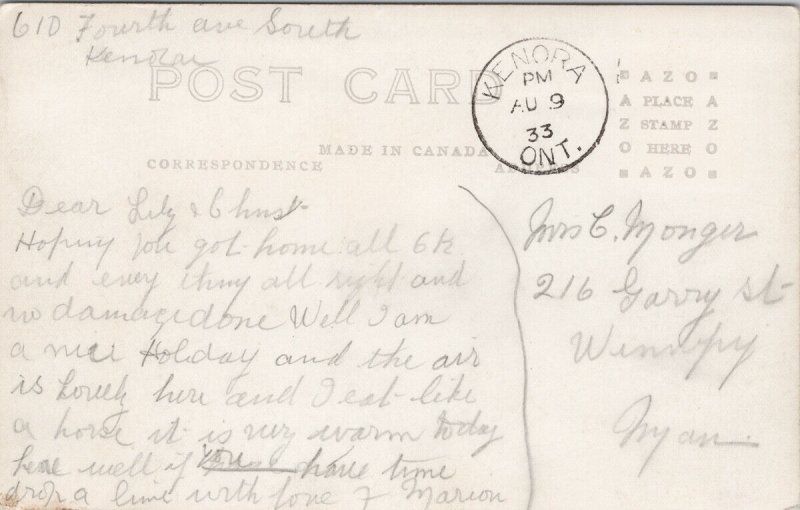 610 Fourth ave South
Kenora
POST CARD
KENORA
PM
AU 9
33
ONT.
AZO
A PLACE A
Z STAMP Z
O HERE O
AZO
MADE IN CANADA
CORRESPONDENCE
ADDRESS
Dear Lily & Christ
Hoping you got home all ok
and every thing all right and
no damage done Well I am
a nice Holiday and the air
is Lovely here and I eat like
a horse it is very warm today
here well if you have time
drop a line with love f Marion
Mrs C. Monger
216 Garry St
Winnipeg
Man